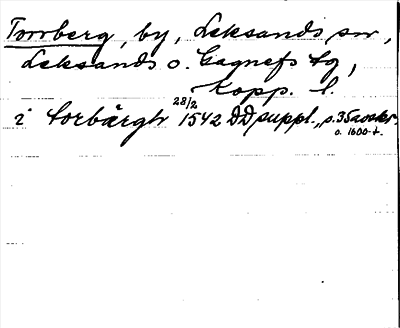 Torrberg, by, Leksands sn,
Leksands o. Gagnefs tg,
Kopp. l.
i torbärgh 28/2 1542 DD suppl., s. 35 avskr.
o. 1600-t.